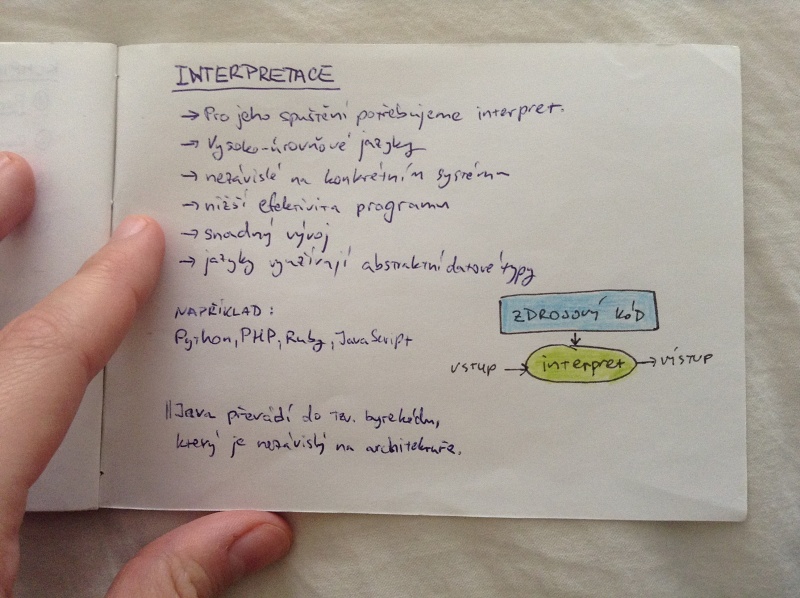 INTERPRETACE
→ Pro jeho spuštění potřebujeme interpret.
→ Vysoko-úrovňové jazyky
→ nezávislé na konkrétním systému
→ nižší efektivita programu
→ snadný vývoj
→ jazyky využívají abstraktní datové typy
NAPŘÍKLAD:
Python, PHP, Ruby, JavaScript
ZDROJOVÝ KÓD
VSTUP → interpret → VÝSTUP
Java převádí do tzv. bytekódu,
který je nezávislý na architektuře.